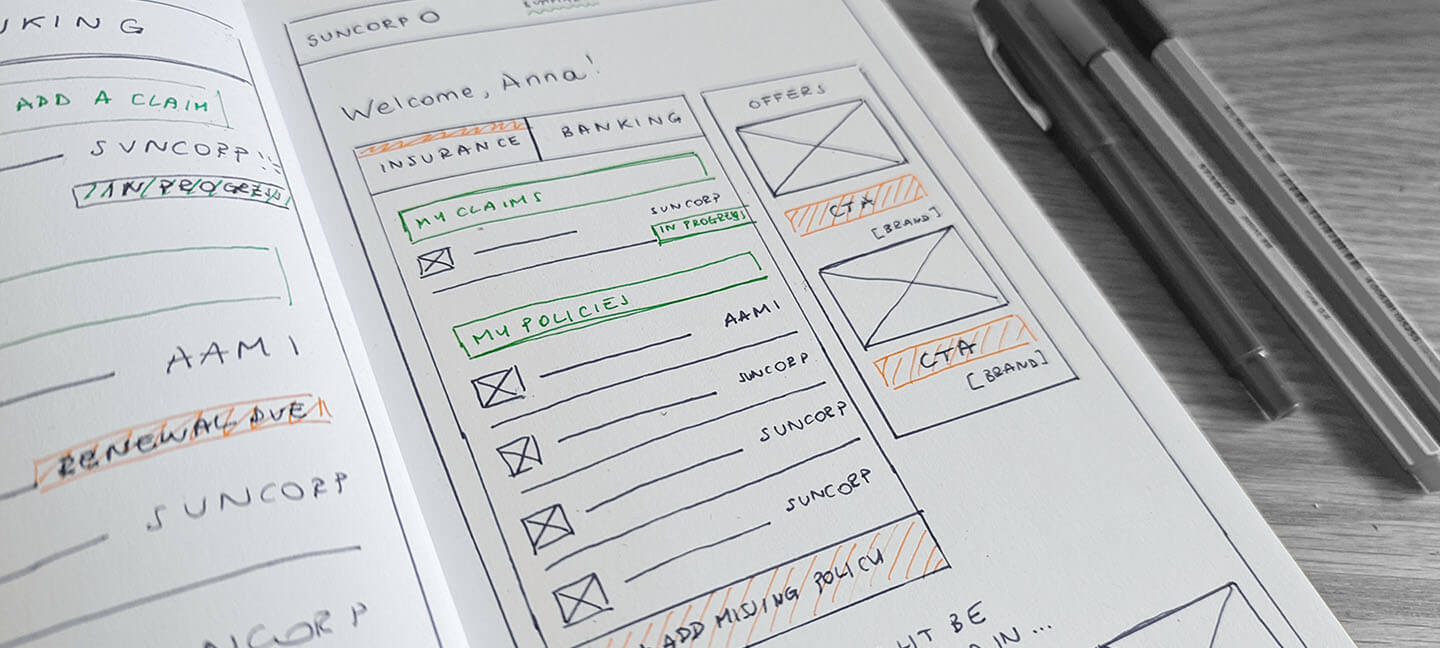 KING
ADD A CLAIM
SUNCORP
IN PROGRESS
AAMI
RENEWAL DUE
SUNCORP
NCORP
SUNCORP
Welcome, Anna!
INSURANCE
BANKING
MY CLAIMS
SUNCORP
IN PROGRESS
MY POLICIES
AAMI
SUNCORP
SUNCORP
SUNCORP
ADD MISSING POLICY
HT BE
IN...
OFFERS
CTA
[BRAND]
CTA
[BRAND]